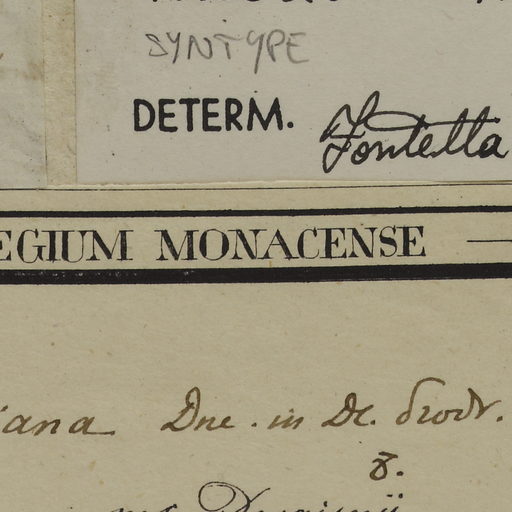 SYNTYPE
DETERM. Fontella
EGIUM MONACENSE
iana Dne. in Dc. Prodr.
8.